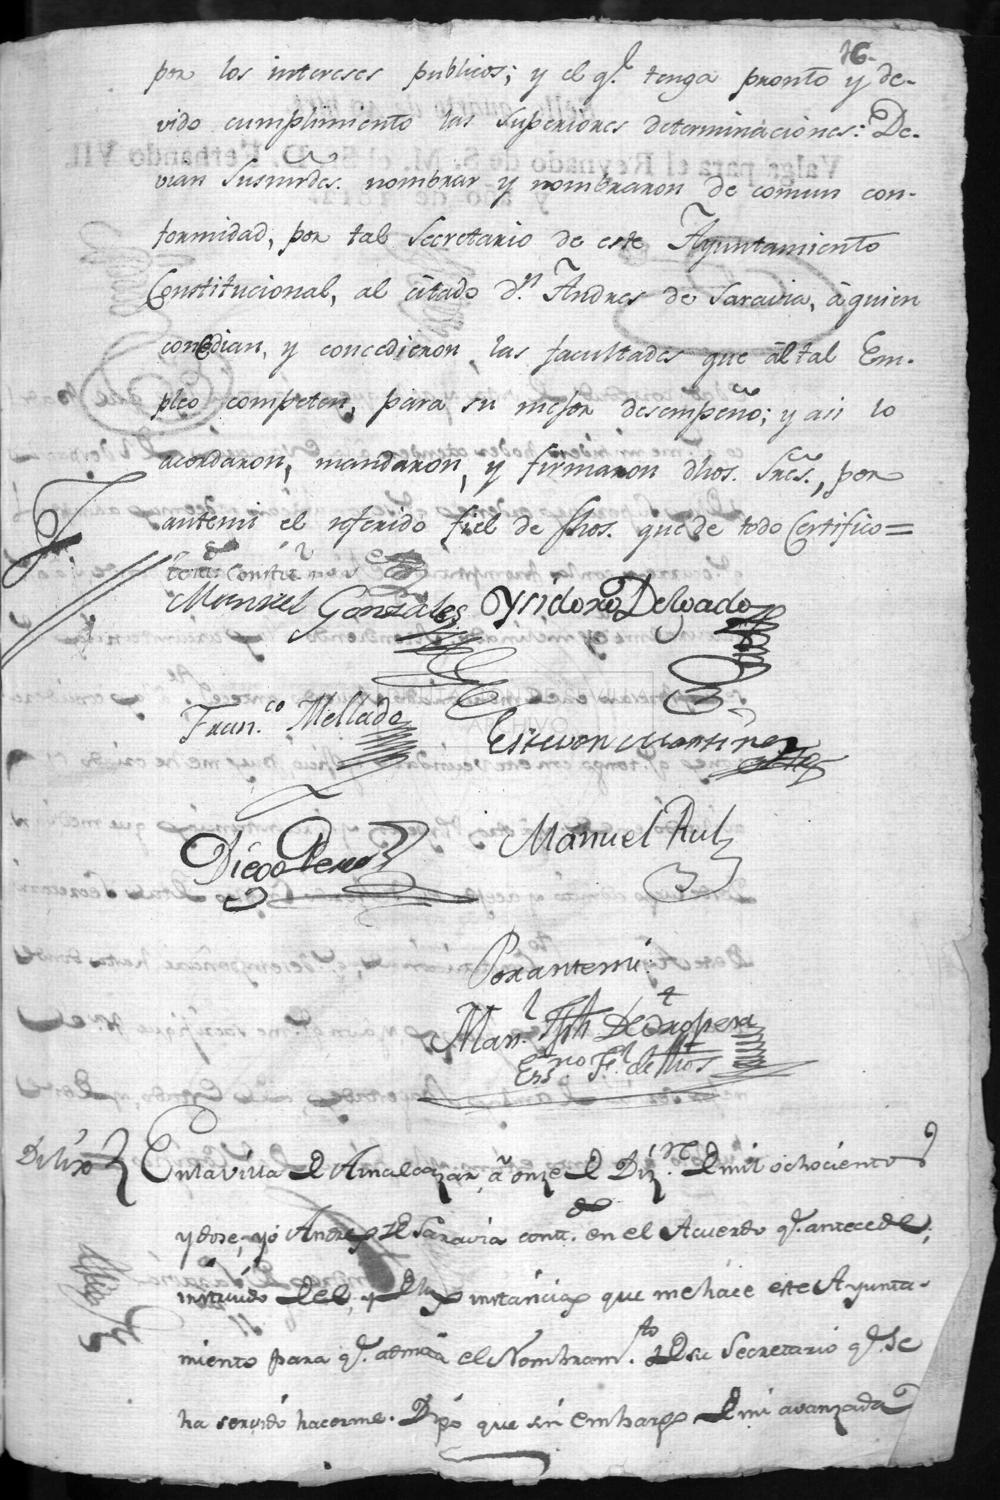 16.
por los intereses publicos; y el qe. tenga pronto y de-
vido cumplimiento las Superiores determinaciones: De-
vian Susmrdes. nombrar y nombraron de comun con-
formidad, por tal Secretario de este Ayuntamiento
Constitucional, al citado dn. Andres de Saravia, à quien
concedian, y concedieron, las facultades que àl tal Em-
pleo competen, para su mejor desempeño; y asi lo
acordaron, mandaron, y firmaron dhos. Sres., por
antemi el referido fiel de fhos. que de todo Certifico=
Manuel Gonzales Ysidoro Delgado
Franco. Mellado
Estevan Martinez
Diego Perez
Manuel Rul
Porantemi:
Manl.
Esno. Fl. de fhos
Enlavilla de Aznalcazar, à onze de Dizre. de mil ochocientos
y dose, yo Andres de Saravia contdo. en el Acuerdo qe. antecede;
instruido de el, y de las instancias que me háce este Ayunta-
miento para qe. admita el Nombramto. de su Secretario qe. se
ha servido hacerme. Dijo que sin embargo de mi avanzada